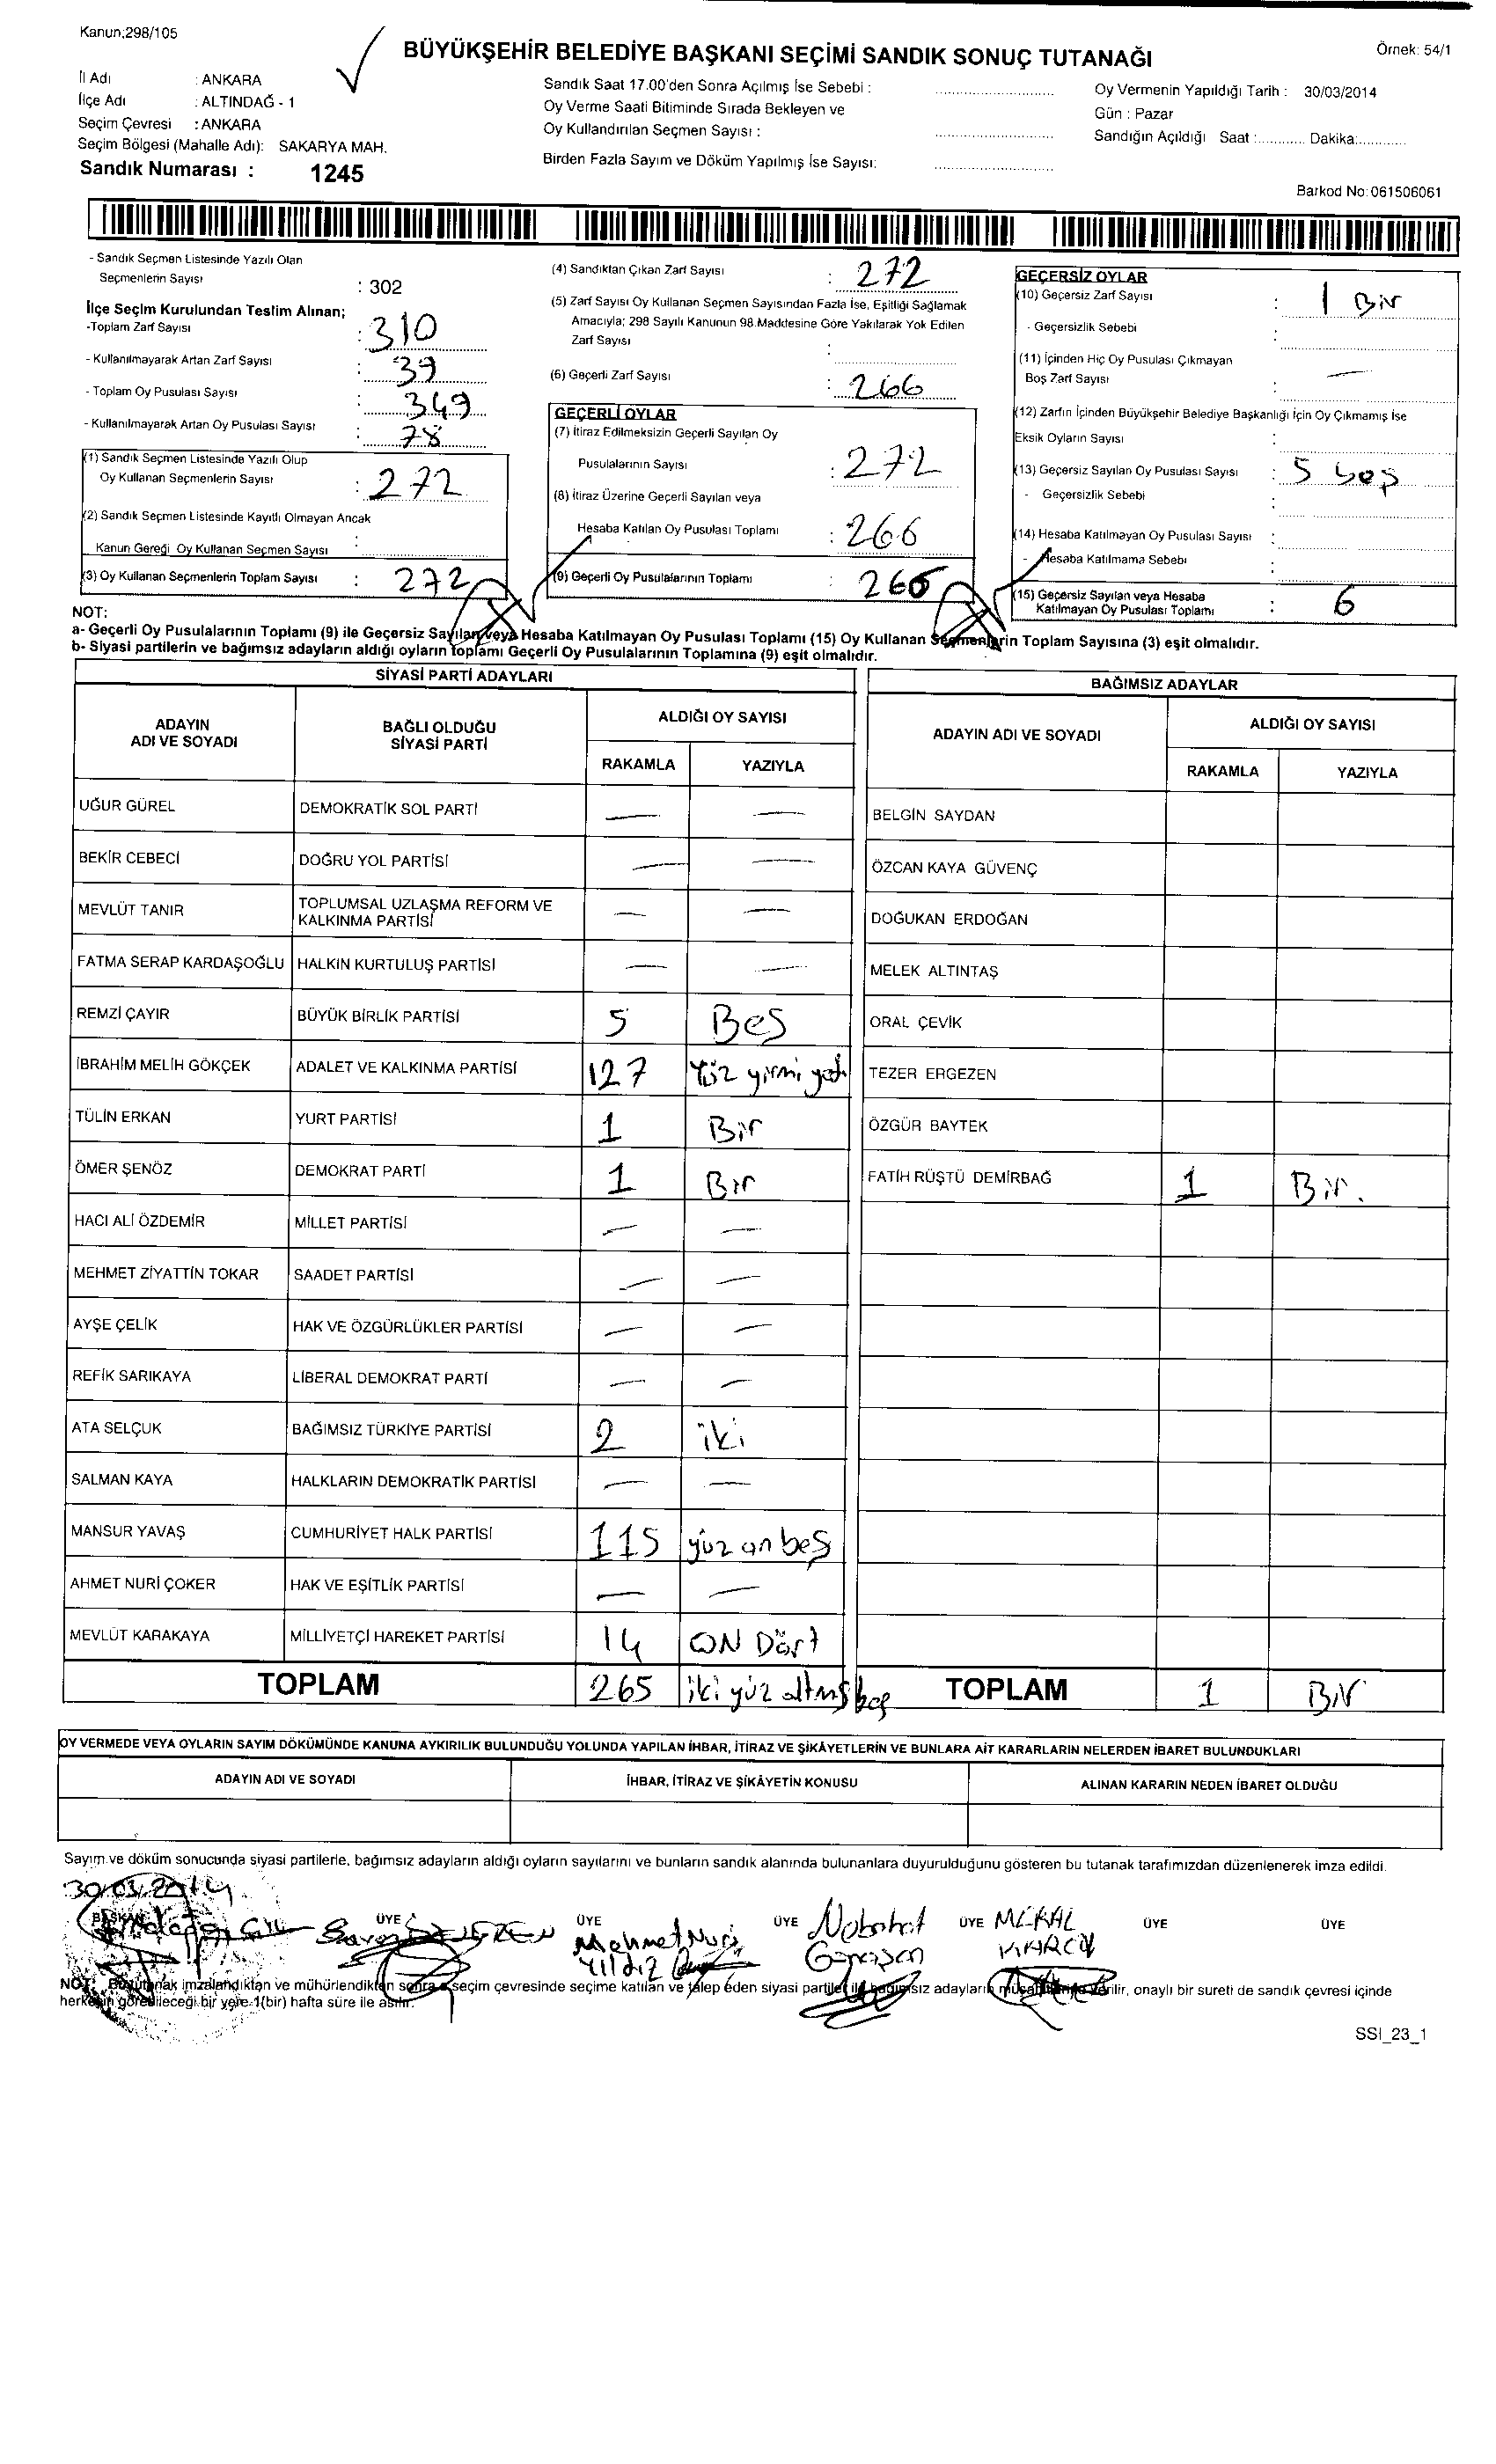 Kanun;298/105
BÜYÜKŞEHİR BELEDİYE BAŞKANI SEÇİMİ SANDIK SONUÇ TUTANAĞI
Örnek: 54/1
İl Adı : ANKARA
İlçe Adı : ALTINDAĞ - 1
Seçim Çevresi : ANKARA
Seçim Bölgesi (Mahalle Adı): SAKARYA MAH.
Sandık Numarası : 1245
Sandık Saat 17.00'den Sonra Açılmış İse Sebebi :
Oy Verme Saati Bitiminde Sırada Bekleyen ve
Oy Kullandırılan Seçmen Sayısı :
Birden Fazla Sayım ve Döküm Yapılmış İse Sayısı:
Oy Vermenin Yapıldığı Tarih : 30/03/2014
Gün : Pazar
Sandığın Açıldığı Saat :............ Dakika:............
Barkod No:061506061
- Sandık Seçmen Listesinde Yazılı Olan
Seçmenlerin Sayısı : 302
İlçe Seçim Kurulundan Teslim Alınan;
-Toplam Zarf Sayısı : 310
- Kullanılmayarak Artan Zarf Sayısı : 39
- Toplam Oy Pusulası Sayısı : 349
- Kullanılmayarak Artan Oy Pusulası Sayısı : 78
(1) Sandık Seçmen Listesinde Yazılı Olup
Oy Kullanan Seçmenlerin Sayısı : 272
(2) Sandık Seçmen Listesinde Kayıtlı Olmayan Ancak
Kanun Gereği Oy Kullanan Seçmen Sayısı :
(3) Oy Kullanan Seçmenlerin Toplam Sayısı : 272
(4) Sandıktan Çıkan Zarf Sayısı : 272
(5) Zarf Sayısı Oy Kullanan Seçmen Sayısından Fazla İse, Eşitliği Sağlamak
Amacıyla; 298 Sayılı Kanunun 98.Maddesine Göre Yakılarak Yok Edilen
Zarf Sayısı :
(6) Geçerli Zarf Sayısı : 266
GEÇERLİ OYLAR
(7) İtiraz Edilmeksizin Geçerli Sayılan Oy
Pusulalarının Sayısı : 272
(8) İtiraz Üzerine Geçerli Sayılan veya
Hesaba Katılan Oy Pusulası Toplamı : 266
(9) Geçerli Oy Pusulalarının Toplamı : 266
GEÇERSİZ OYLAR
(10) Geçersiz Zarf Sayısı : 1 Bir
- Geçersizlik Sebebi :
(11) İçinden Hiç Oy Pusulası Çıkmayan
Boş Zarf Sayısı : —
(12) Zarfın İçinden Büyükşehir Belediye Başkanlığı İçin Oy Çıkmamış İse
Eksik Oyların Sayısı :
(13) Geçersiz Sayılan Oy Pusulası Sayısı : 5 beş
- Geçersizlik Sebebi :
(14) Hesaba Katılmayan Oy Pusulası Sayısı :
- Hesaba Katılmama Sebebi :
(15) Geçersiz Sayılan veya Hesaba
Katılmayan Oy Pusulası Toplamı : 6
NOT:
a- Geçerli Oy Pusulalarının Toplamı (9) ile Geçersiz Sayılan veya Hesaba Katılmayan Oy Pusulası Toplamı (15) Oy Kullanan Seçmenlerin Toplam Sayısına (3) eşit olmalıdır.
b- Siyasi partilerin ve bağımsız adayların aldığı oyların toplamı Geçerli Oy Pusulalarının Toplamına (9) eşit olmalıdır.
SİYASİ PARTİ ADAYLARI
ADAYIN ADI VE SOYADI
BAĞLI OLDUĞU SİYASİ PARTİ
ALDIĞI OY SAYISI
RAKAMLA YAZIYLA
UĞUR GÜREL DEMOKRATİK SOL PARTİ — —
BEKİR CEBECİ DOĞRU YOL PARTİSİ — —
MEVLÜT TANIR TOPLUMSAL UZLAŞMA REFORM VE KALKINMA PARTİSİ — —
FATMA SERAP KARDAŞOĞLU HALKIN KURTULUŞ PARTİSİ — —
REMZİ ÇAYIR BÜYÜK BİRLİK PARTİSİ 5 Beş
İBRAHİM MELİH GÖKÇEK ADALET VE KALKINMA PARTİSİ 127 Yüz yirmi yedi
TÜLİN ERKAN YURT PARTİSİ 1 Bir
ÖMER ŞENÖZ DEMOKRAT PARTİ 1 Bir
HACI ALİ ÖZDEMİR MİLLET PARTİSİ — —
MEHMET ZİYATTİN TOKAR SAADET PARTİSİ — —
AYŞE ÇELİK HAK VE ÖZGÜRLÜKLER PARTİSİ — —
REFİK SARIKAYA LİBERAL DEMOKRAT PARTİ — —
ATA SELÇUK BAĞIMSIZ TÜRKİYE PARTİSİ 2 iki
SALMAN KAYA HALKLARIN DEMOKRATİK PARTİSİ — —
MANSUR YAVAŞ CUMHURİYET HALK PARTİSİ 115 yüz on beş
AHMET NURİ ÇOKER HAK VE EŞİTLİK PARTİSİ — —
MEVLÜT KARAKAYA MİLLİYETÇİ HAREKET PARTİSİ 14 ON Dört
TOPLAM 265 iki yüz altmış beş
BAĞIMSIZ ADAYLAR
ADAYIN ADI VE SOYADI
ALDIĞI OY SAYISI
RAKAMLA YAZIYLA
BELGİN SAYDAN
ÖZCAN KAYA GÜVENÇ
DOĞUKAN ERDOĞAN
MELEK ALTINTAŞ
ORAL ÇEVİK
TEZER ERGEZEN
ÖZGÜR BAYTEK
FATİH RÜŞTÜ DEMİRBAĞ 1 Bir.
TOPLAM 1 Bir
OY VERMEDE VEYA OYLARIN SAYIM DÖKÜMÜNDE KANUNA AYKIRILIK BULUNDUĞU YOLUNDA YAPILAN İHBAR, İTİRAZ VE ŞİKÂYETLERİN VE BUNLARA AİT KARARLARIN NELERDEN İBARET BULUNDUKLARI
ADAYIN ADI VE SOYADI İHBAR, İTİRAZ VE ŞİKÂYETİN KONUSU ALINAN KARARIN NEDEN İBARET OLDUĞU
Sayım ve döküm sonucunda siyasi partilerle, bağımsız adayların aldığı oyların sayılarını ve bunların sandık alanında bulunanlara duyurulduğunu gösteren bu tutanak tarafımızdan düzenlenerek imza edildi.
30.03.2014
BAŞKAN ÜYE ÜYE ÜYE ÜYE ÜYE ÜYE
Mehmet Nuri
Yıldız
NOT: Bu tutanak imzalandıktan ve mühürlendikten sonra seçim çevresinde seçime katılan ve talep eden siyasi partiler ile bağımsız adayların müşahitlerine verilir, onaylı bir sureti de sandık çevresi içinde
herkesin görebileceği bir yere 1(bir) hafta süre ile asılır.
SSI_23_1